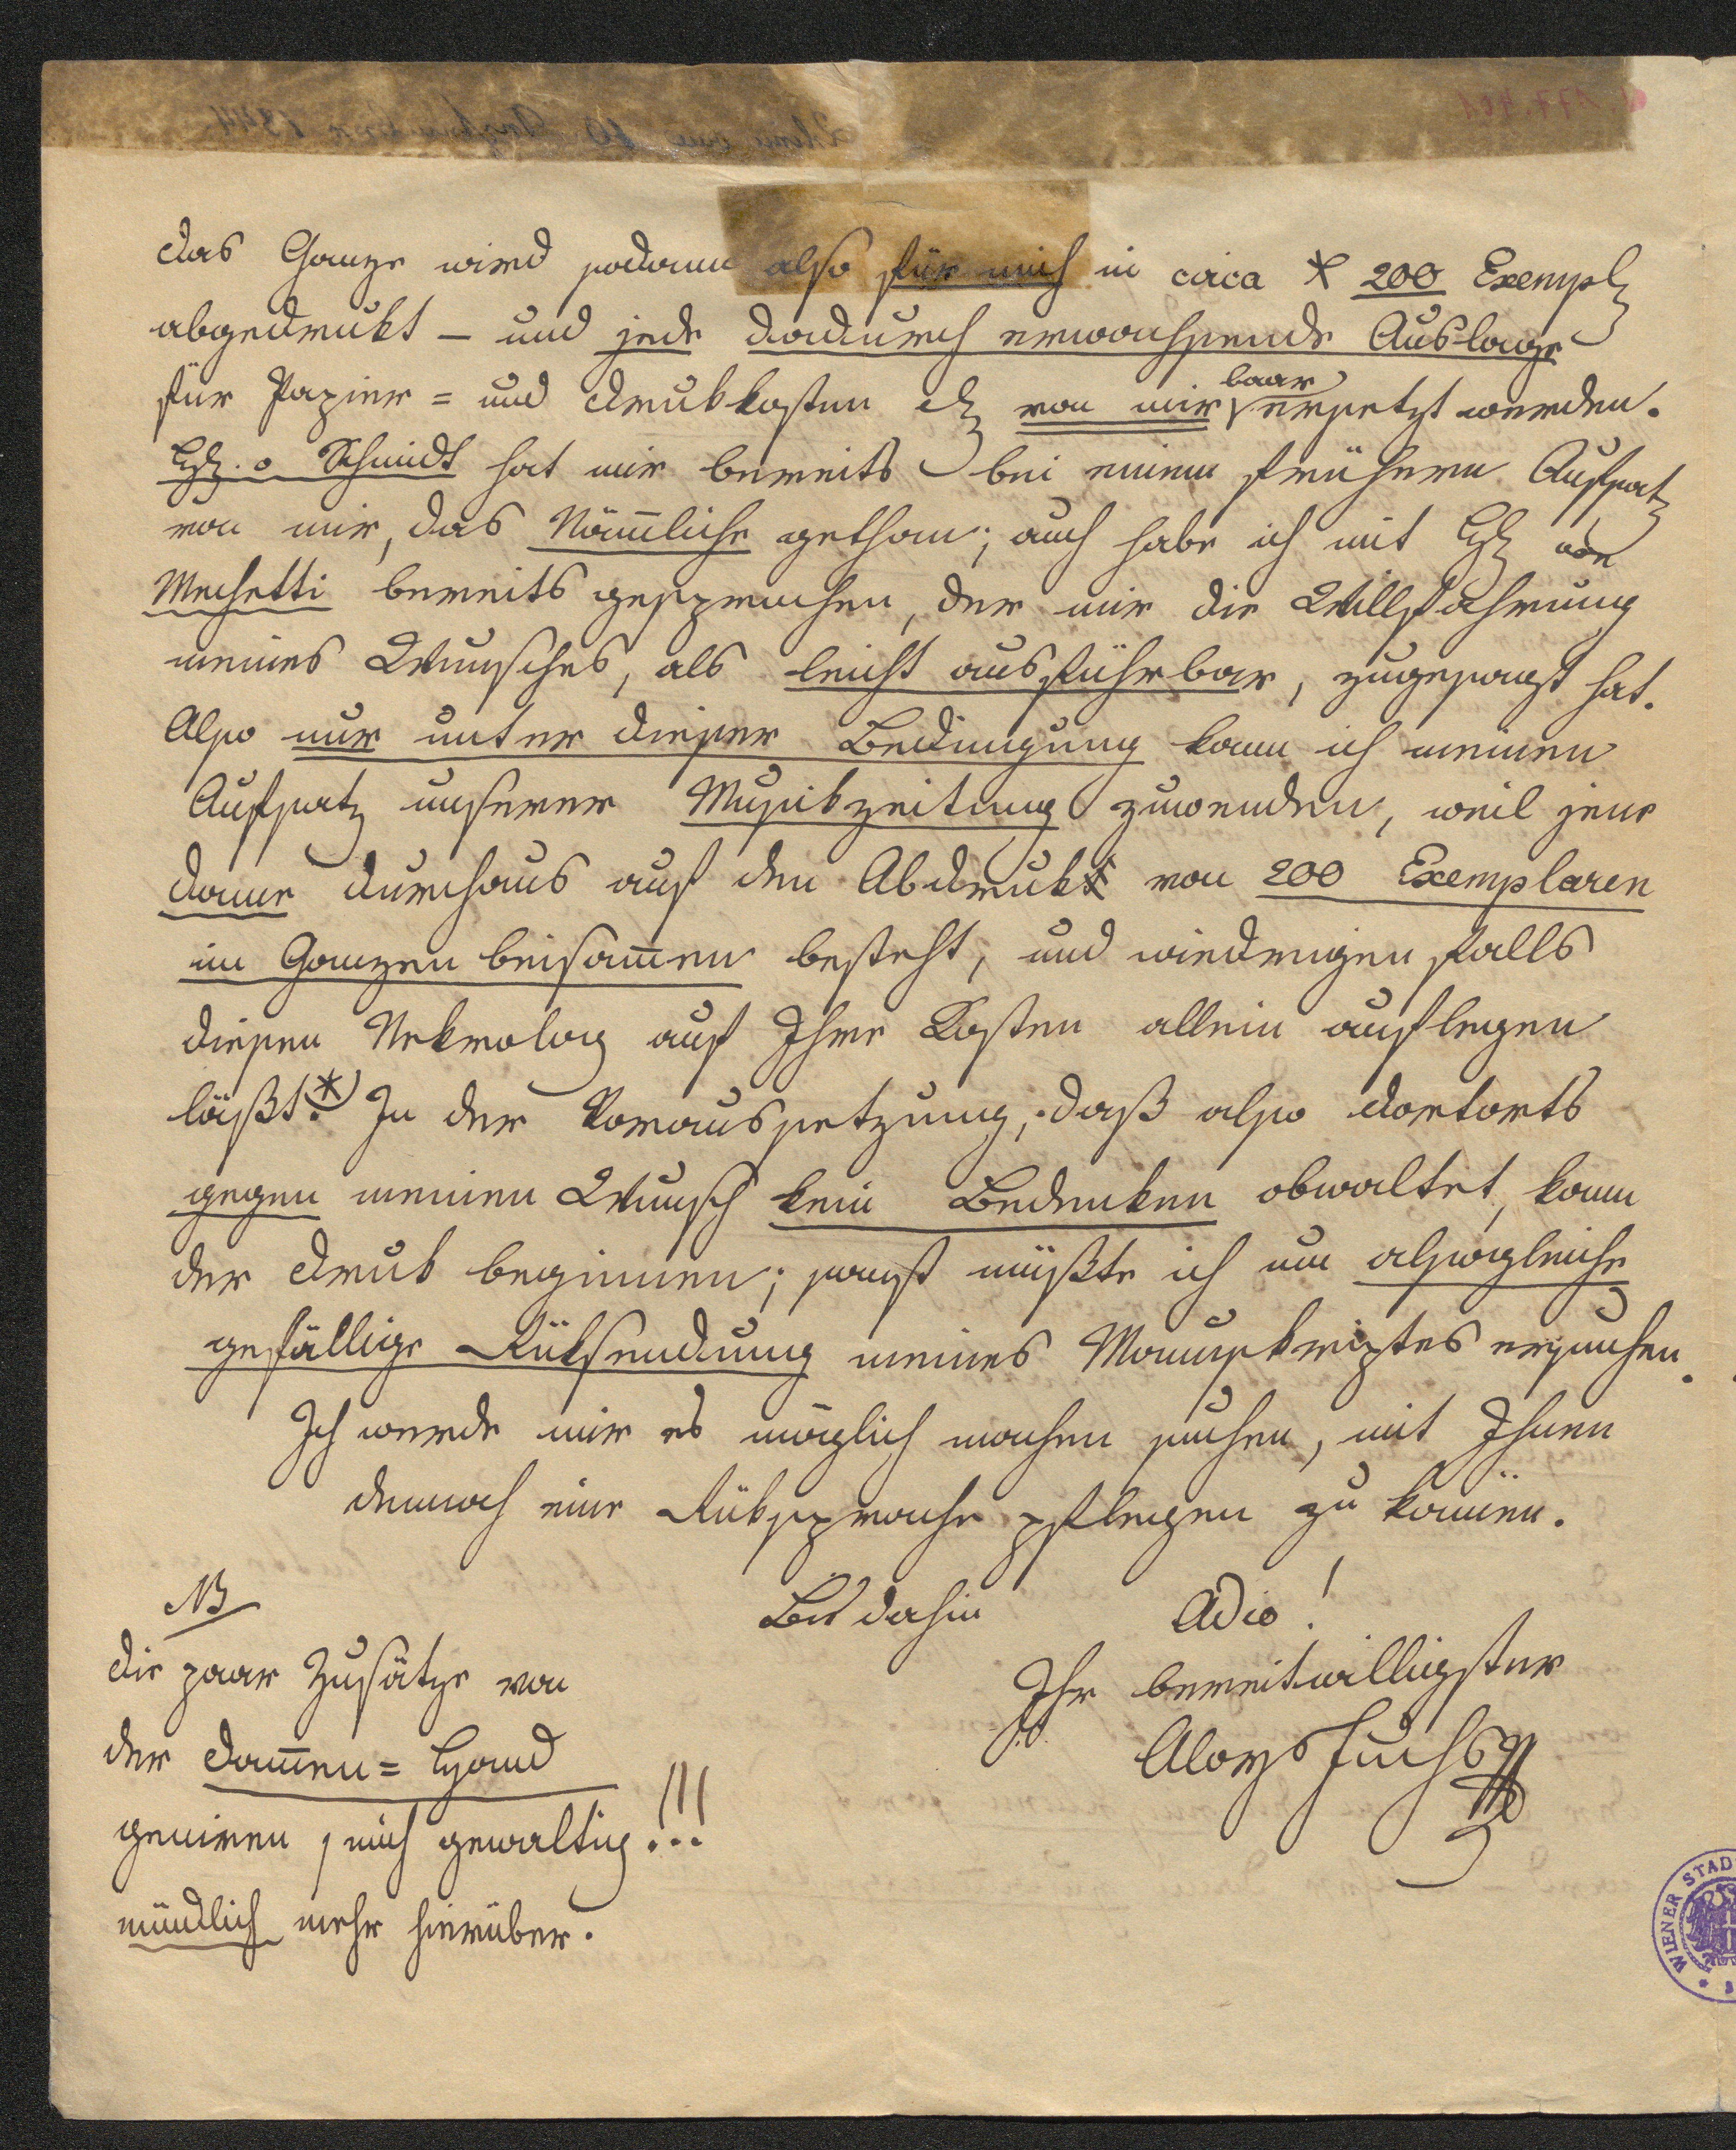 das Ganze wird sodann also für mich in circa 200 Exempl
abgedrukt – und jede dadurch erwachsende Auslage
für Papier- und Drukkosten etc von mir baar ersetzt werden.
H. Schmidt hat mir bereits bei einem frühern Aufsatz
von mir, das Nämliche gethan; auch habe ich mit H
Mechetti bereits gesprochen, der mir die Willfahrung
meines Wunsches, als leicht ausführbar, zugesagt hat.
Also nur unter dieser Bedingung kann ich meinen
Aufsatz unserer Musikzeitung zuwenden, weil jene
Dame durchaus auf den Abdruk von 200 Exemplaren
im Ganzen beisam̄en besteht, und wiedrigenfalls
diesen Nekrolog auf Ihre Kosten allein auflegen
läßt. *) In der Voraussetzung, daß also dortorts
gegen meinen Wunsch kein Bedenken obwaltet, kann
der Druk beginnen; sonst müßte ich um alsogleiche
gefällige Rüksendung meines Manuskriptes ersuchen.
Ich werde mir es möglich machen suchen, mit Ihnen
demnach eine Rüksprache pflegen zu können.
Bis dahin Adio!
Ihr bereitwilligster
Aloys Fuchs
NB
Die paar Zusätze von
der Dam̄en-Hand
geniren mich gewaltig!!!
mündlich mehr hierüber.
WIENER STAD